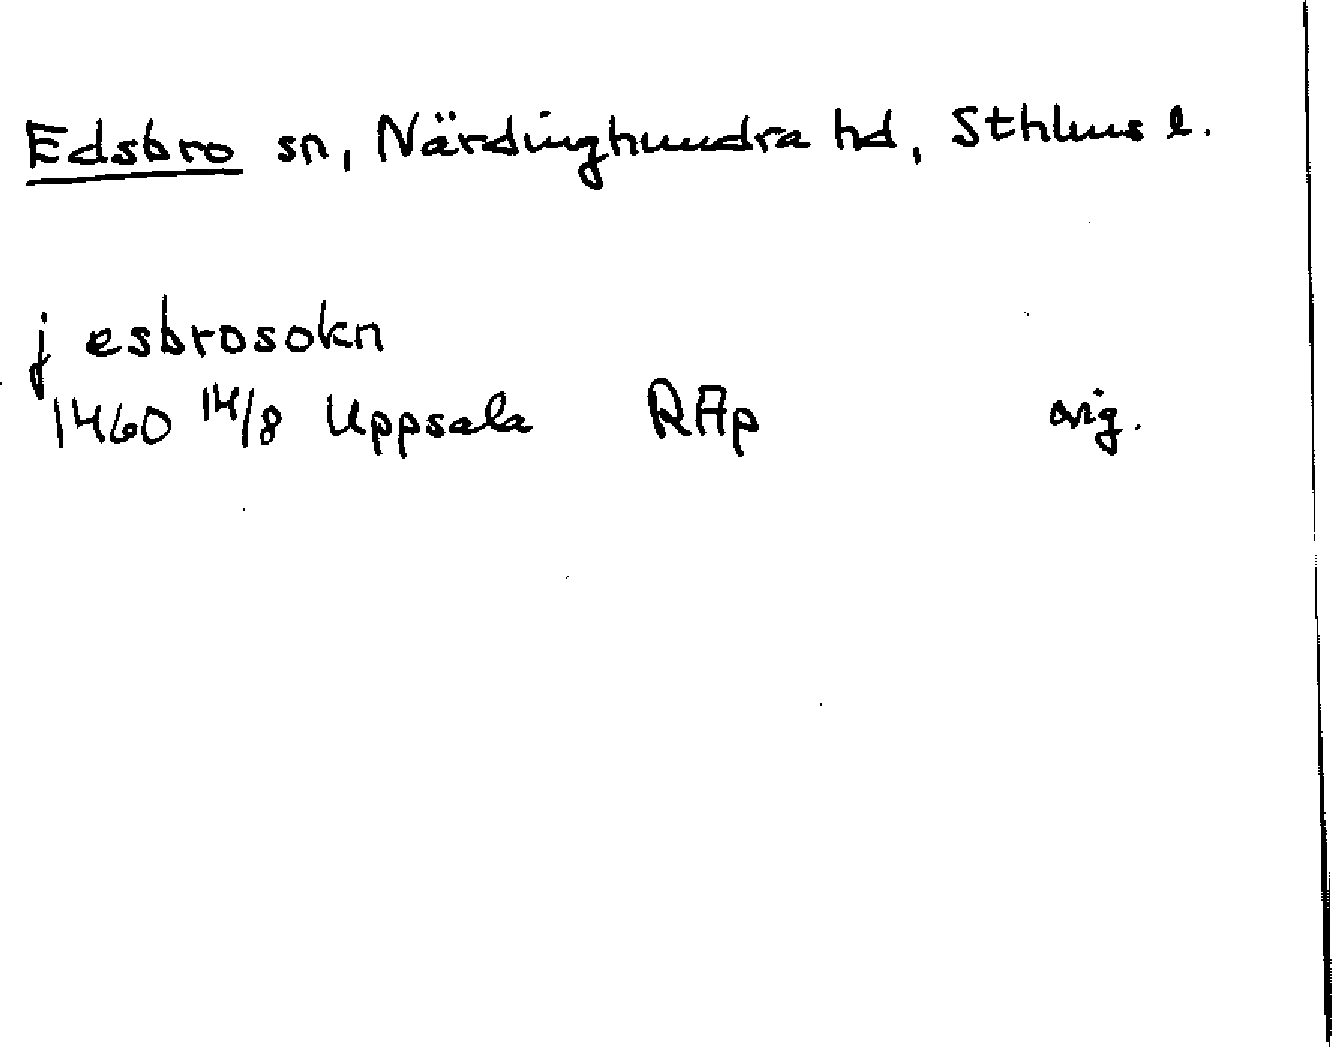 Edsbro sn, Närdinghundra hd, Sthlms l.
j esbrosokn
1460 14/8 Uppsala RAp orig.